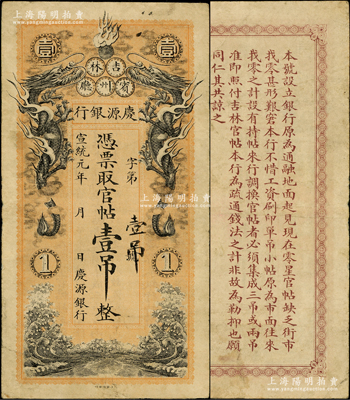 上海陽明拍賣有限公司
壹
壹
吉林
賓州廳
慶源銀行
字第
壹吊
憑票取官帖壹吊整
宣統元年 月 日慶源銀行
1
1
本號設立銀行原為通融地面起見現在零星官帖缺乏街市
我零甚形艱窘本行不惜工資刷印單吊小帖原為市面往來
我零之計設有持帖來行調換官帖者必須集成三吊或兩吊
准即照付吉林官帖本行為疏通錢法之計非故為勒抑也願
同仁其共諒之
上海陽明拍賣有限公司